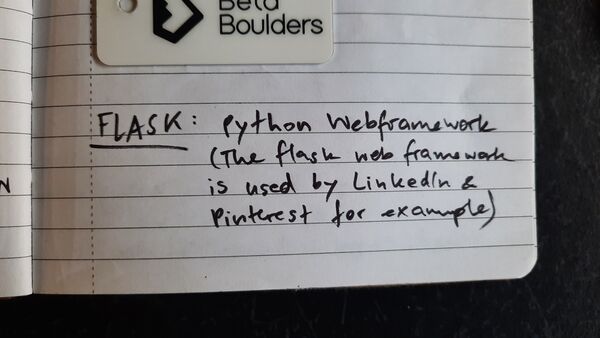 Beta
Boulders
FLASK: Python Webframework
(The flask web framework
is used by LinkedIn &
Pinterest for example)
N